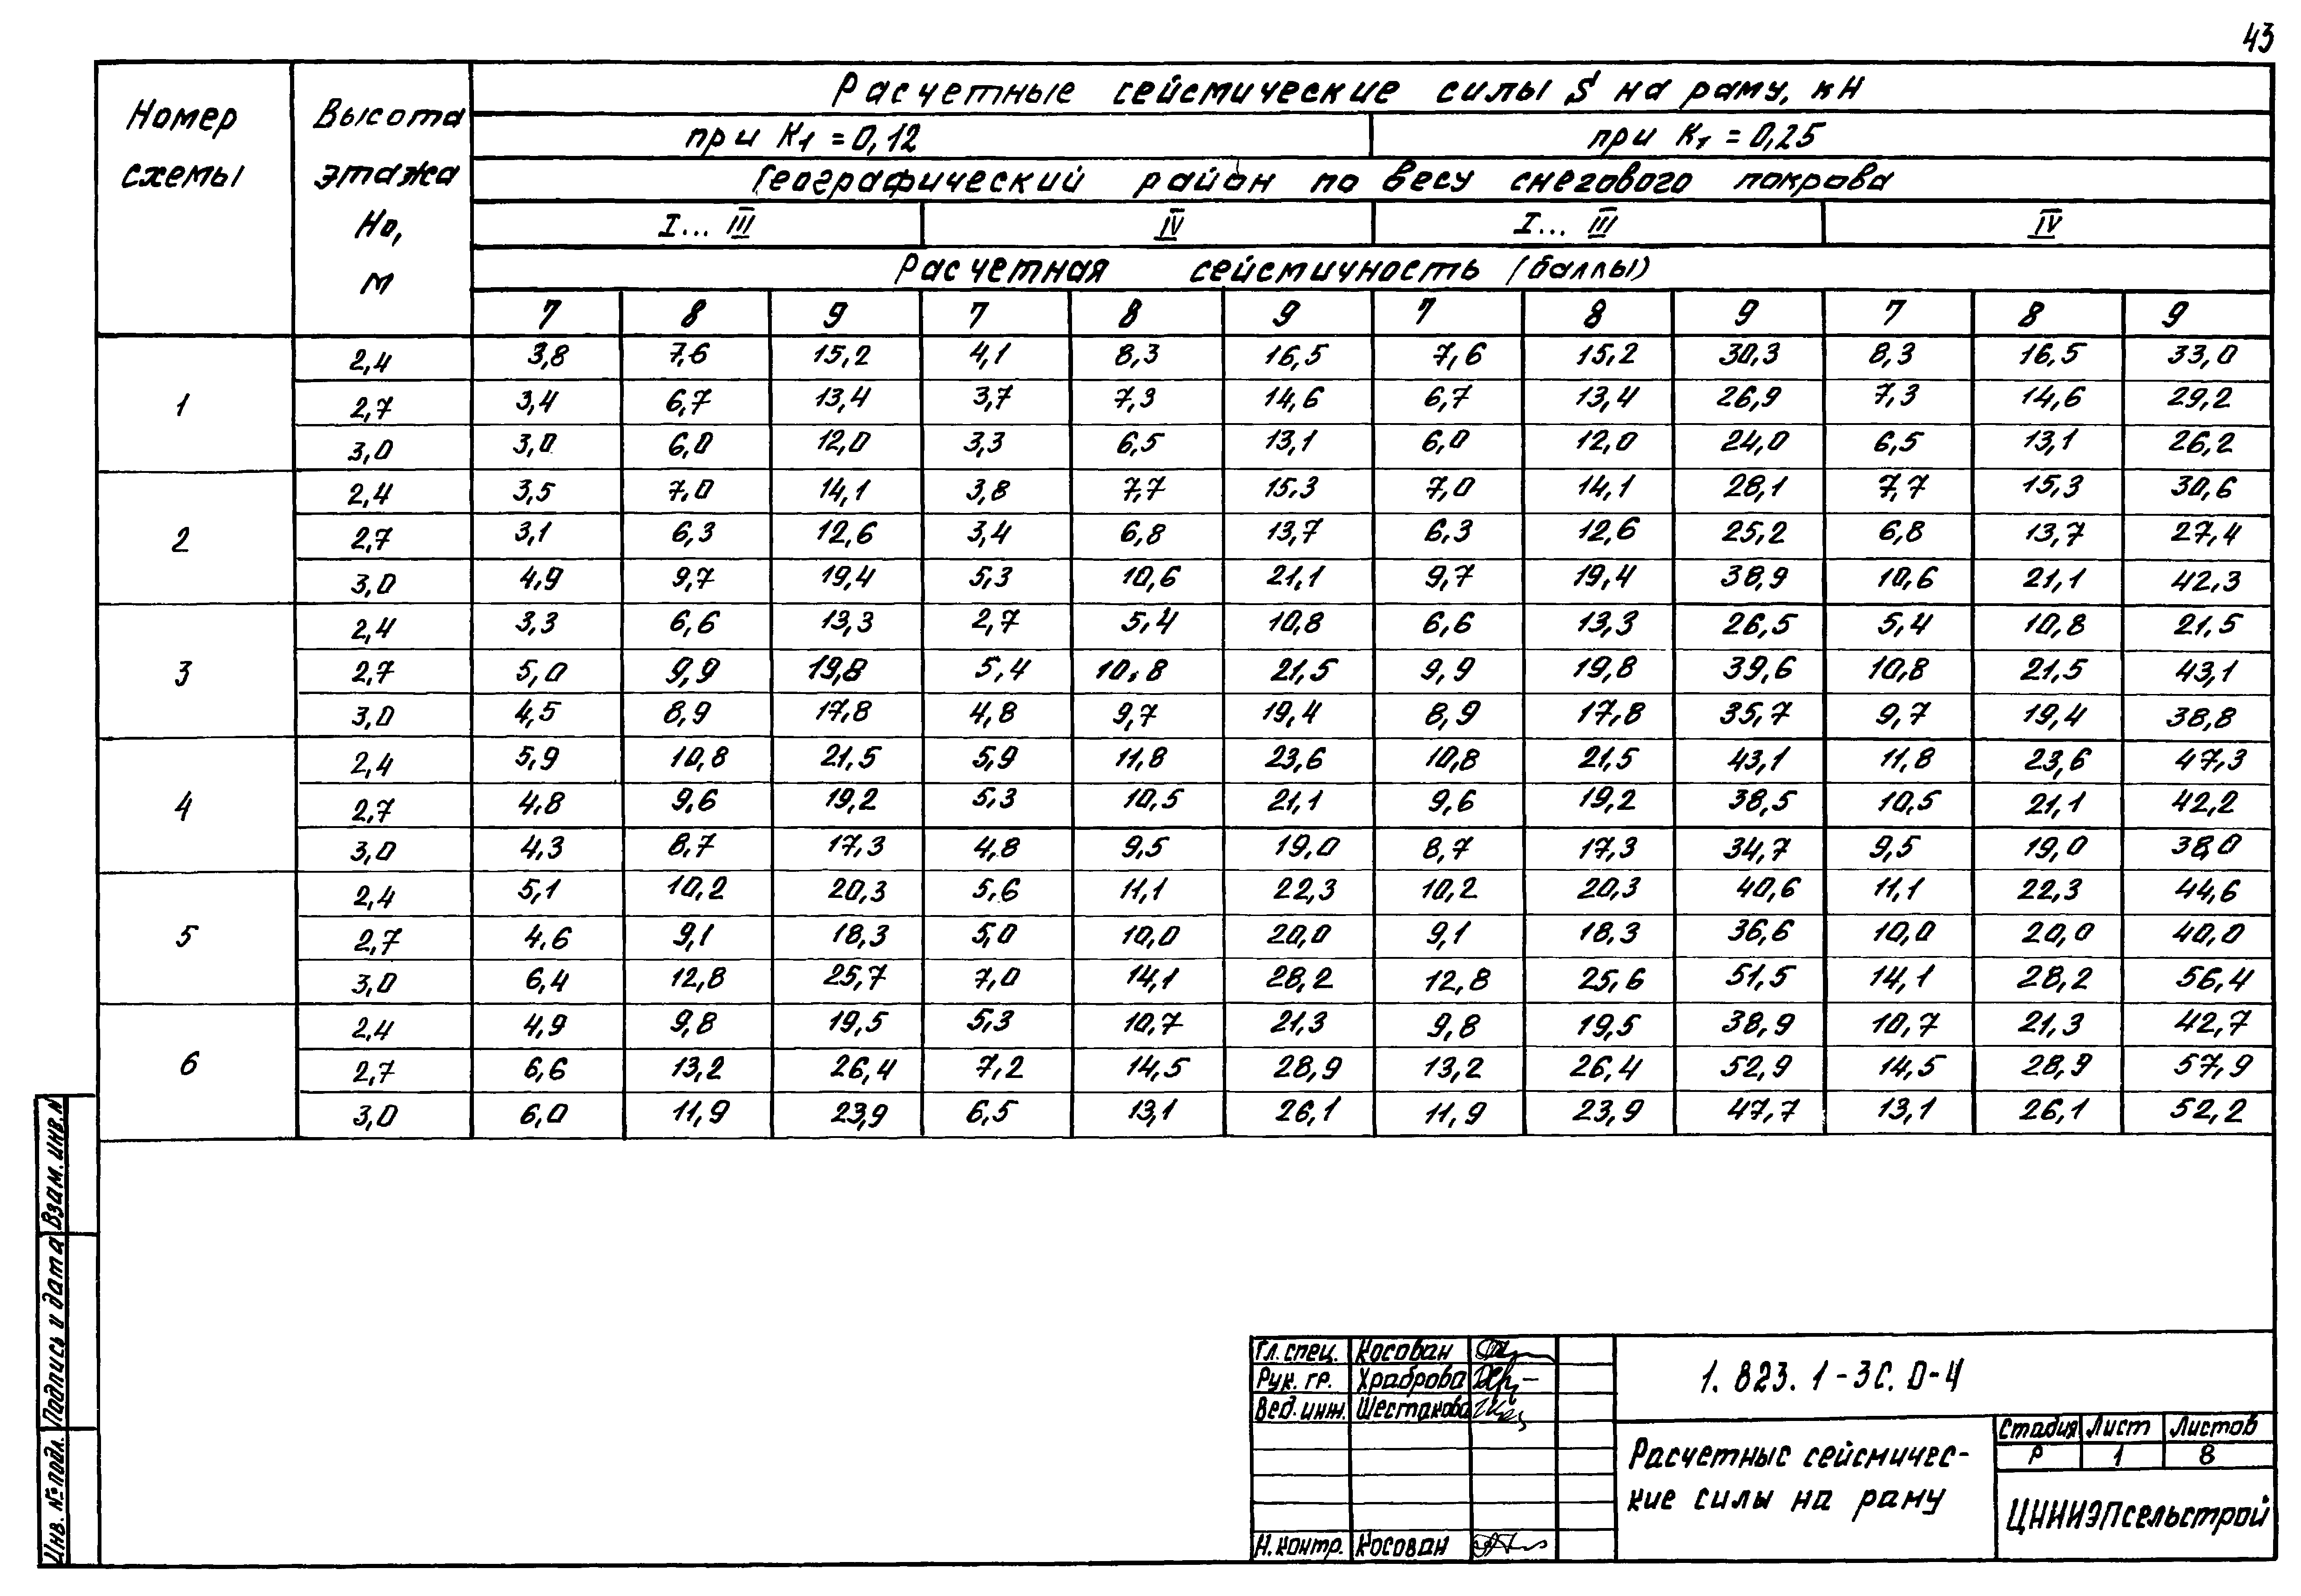 43
Номер схемы
Высота этажа Но, м
Расчетные сейсмические силы S на раму, кН
при К1 = 0,12 при К1 = 0,25
Географический район по весу снегового покрова
I... III IV I... III IV
Расчетная сейсмичность (баллы)
7 8 9 7 8 9 7 8 9 7 8 9
1
2,4 3,8 7,6 15,2 4,1 8,3 16,5 7,6 15,2 30,3 8,3 16,5 33,0
2,7 3,4 6,7 13,4 3,7 7,3 14,6 6,7 13,4 26,9 7,3 14,6 29,2
3,0 3,0 6,0 12,0 3,3 6,5 13,1 6,0 12,0 24,0 6,5 13,1 26,2
2
2,4 3,5 7,0 14,1 3,8 7,7 15,3 7,0 14,1 28,1 7,7 15,3 30,6
2,7 3,1 6,3 12,6 3,4 6,8 13,7 6,3 12,6 25,2 6,8 13,7 27,4
3,0 4,9 9,7 19,4 5,3 10,6 21,1 9,7 19,4 38,9 10,6 21,1 42,3
3
2,4 3,3 6,6 13,3 2,7 5,4 10,8 6,6 13,3 26,5 5,4 10,8 21,5
2,7 5,0 9,9 19,8 5,4 10,8 21,5 9,9 19,8 39,6 10,8 21,5 43,1
3,0 4,5 8,9 17,8 4,8 9,7 19,4 8,9 17,8 35,7 9,7 19,4 38,8
4
2,4 5,9 10,8 21,5 5,9 11,8 23,6 10,8 21,5 43,1 11,8 23,6 47,3
2,7 4,8 9,6 19,2 5,3 10,5 21,1 9,6 19,2 38,5 10,5 21,1 42,2
3,0 4,3 8,7 17,3 4,8 9,5 19,0 8,7 17,3 34,7 9,5 19,0 38,0
5
2,4 5,1 10,2 20,3 5,6 11,1 22,3 10,2 20,3 40,6 11,1 22,3 44,6
2,7 4,6 9,1 18,3 5,0 10,0 20,0 9,1 18,3 36,6 10,0 20,0 40,0
3,0 6,4 12,8 25,7 7,0 14,1 28,2 12,8 25,6 51,5 14,1 28,2 56,4
6
2,4 4,9 9,8 19,5 5,3 10,7 21,3 9,8 19,5 38,9 10,7 21,3 42,7
2,7 6,6 13,2 26,4 7,2 14,5 28,9 13,2 26,4 52,9 14,5 28,9 57,9
3,0 6,0 11,9 23,9 6,5 13,1 26,1 11,9 23,9 47,7 13,1 26,1 52,2
Взам. инв. №
Подпись и дата
Инв. № подл.
Гл. спец. Косован
Рук. гр. Храброва
Вед. инж. Шестакова
Н. контр. Косован
1.823.1-3С.0-4
Расчетные сейсмичес-
кие силы на раму
Стадия Лист Листов
Р 1 8
ЦНИИЭПсельстрой